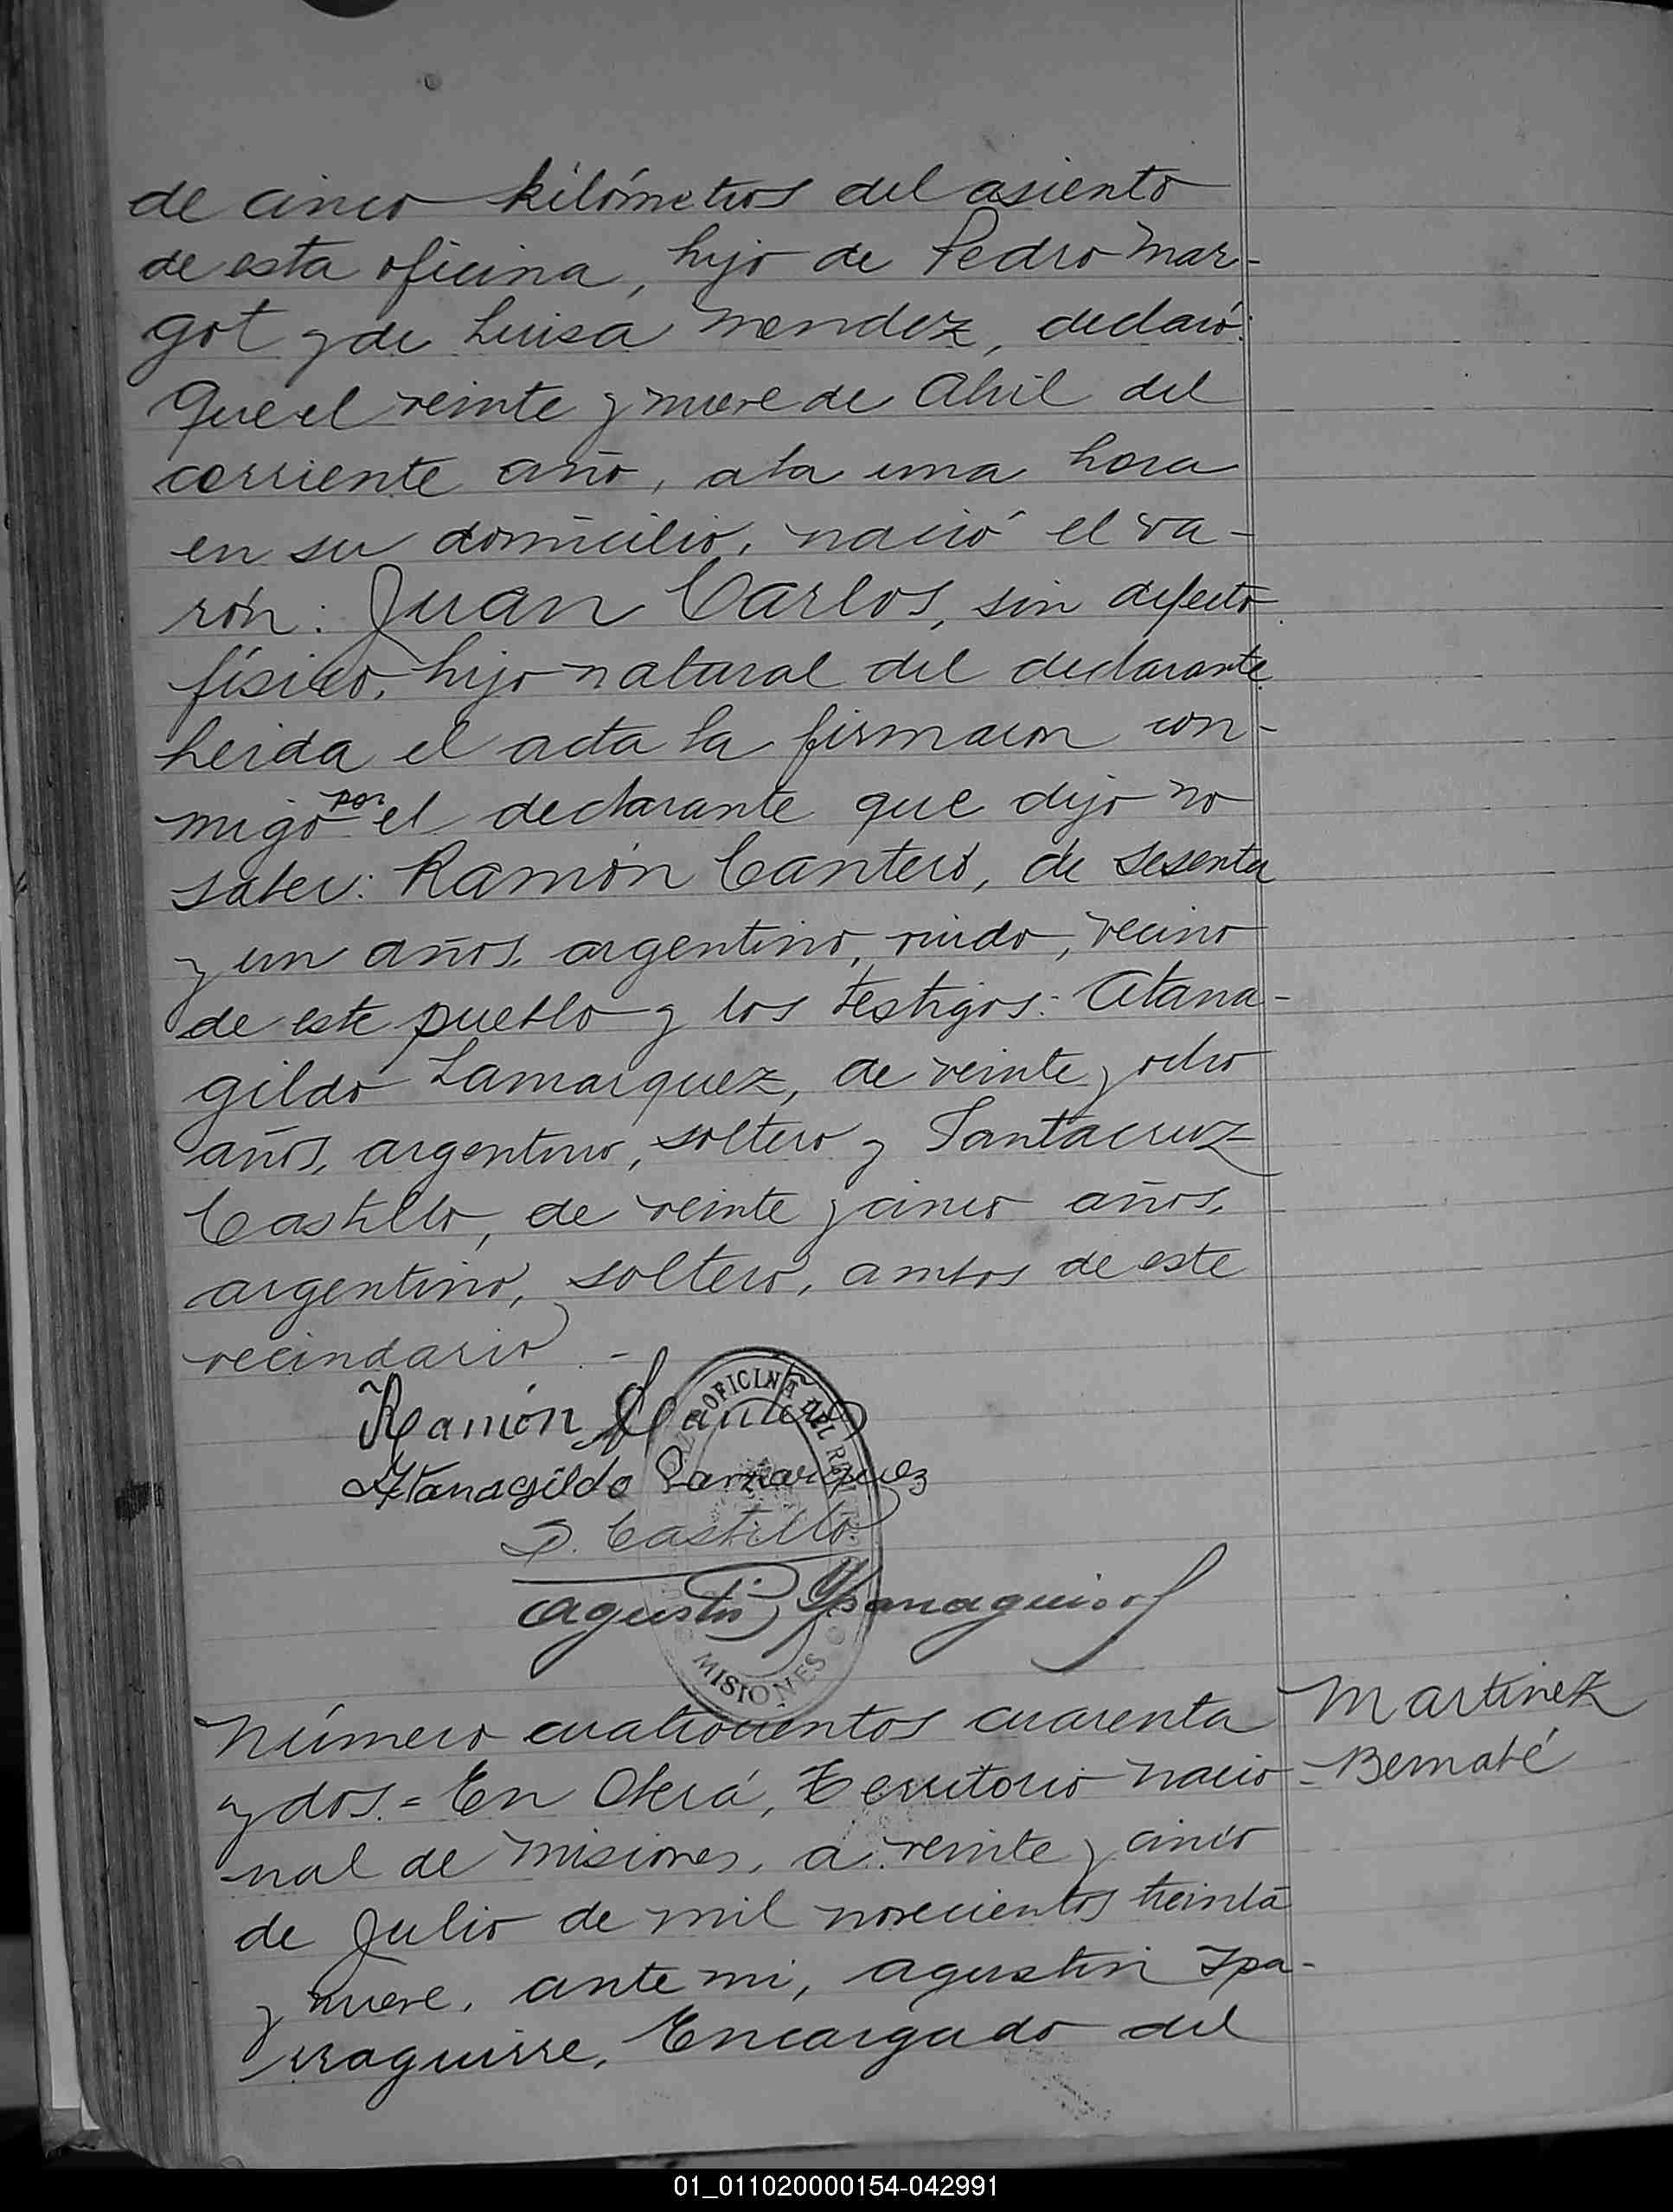 de cinco kilómetros del asiento
de esta oficina, hijo de Pedro Mar-
got y de Luisa Mendez, declaró:
Que el veinte y nueve de Abril del
corriente año, a la una hora
en su domicilio, nació el va-
rón: Juan Carlos, sin defecto
físico, hijo natural del declarante
Leida el acta la firmaron con-
migo por el declarante que dijo no
saber: Ramón Cantero, de sesenta
y un años, argentino, viudo, vecino
de este pueblo y los testigos: Atana-
gildo Lamarquez, de veinte y ocho
años, argentino, soltero y Santacruz
Castillo, de veinte y cinco años,
argentino, soltero, ambos de este
vecindario.-
Ramón Cantero
Atanagildo Lamarquez
S. Castillo
Agustin Yparraguirre
OFICINA DEL
MISIONES
Número cuatrocientos cuarenta
y dos.= En Oberá, Territorio Nacio-
nal de Misiones, a veinte y cinco
de Julio de mil novecientos treinta
y nueve, ante mi, Agustin Ipa-
rraguirre, Encargado del
Martinez
Bernabé
01_011020000154-042991